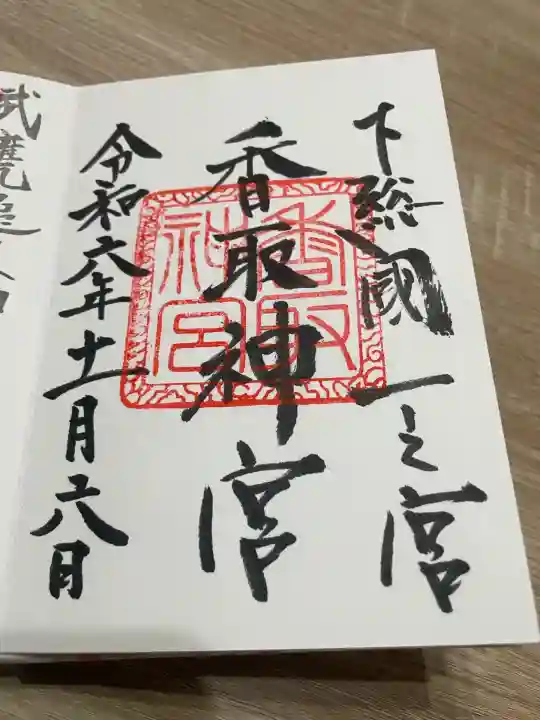 下総國一之宮
香取神宮
香取
神宮
令和六年十一月六日
武甕槌大